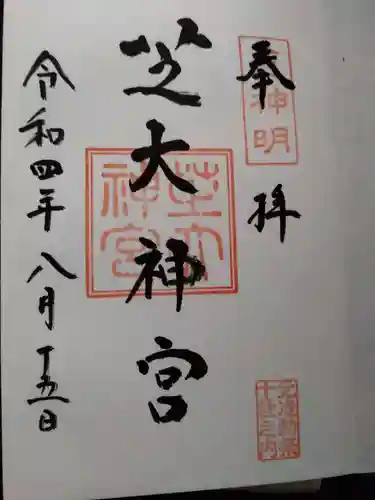 奉拝
神明
芝大神宮
芝大神宮
令和四年八月十五日